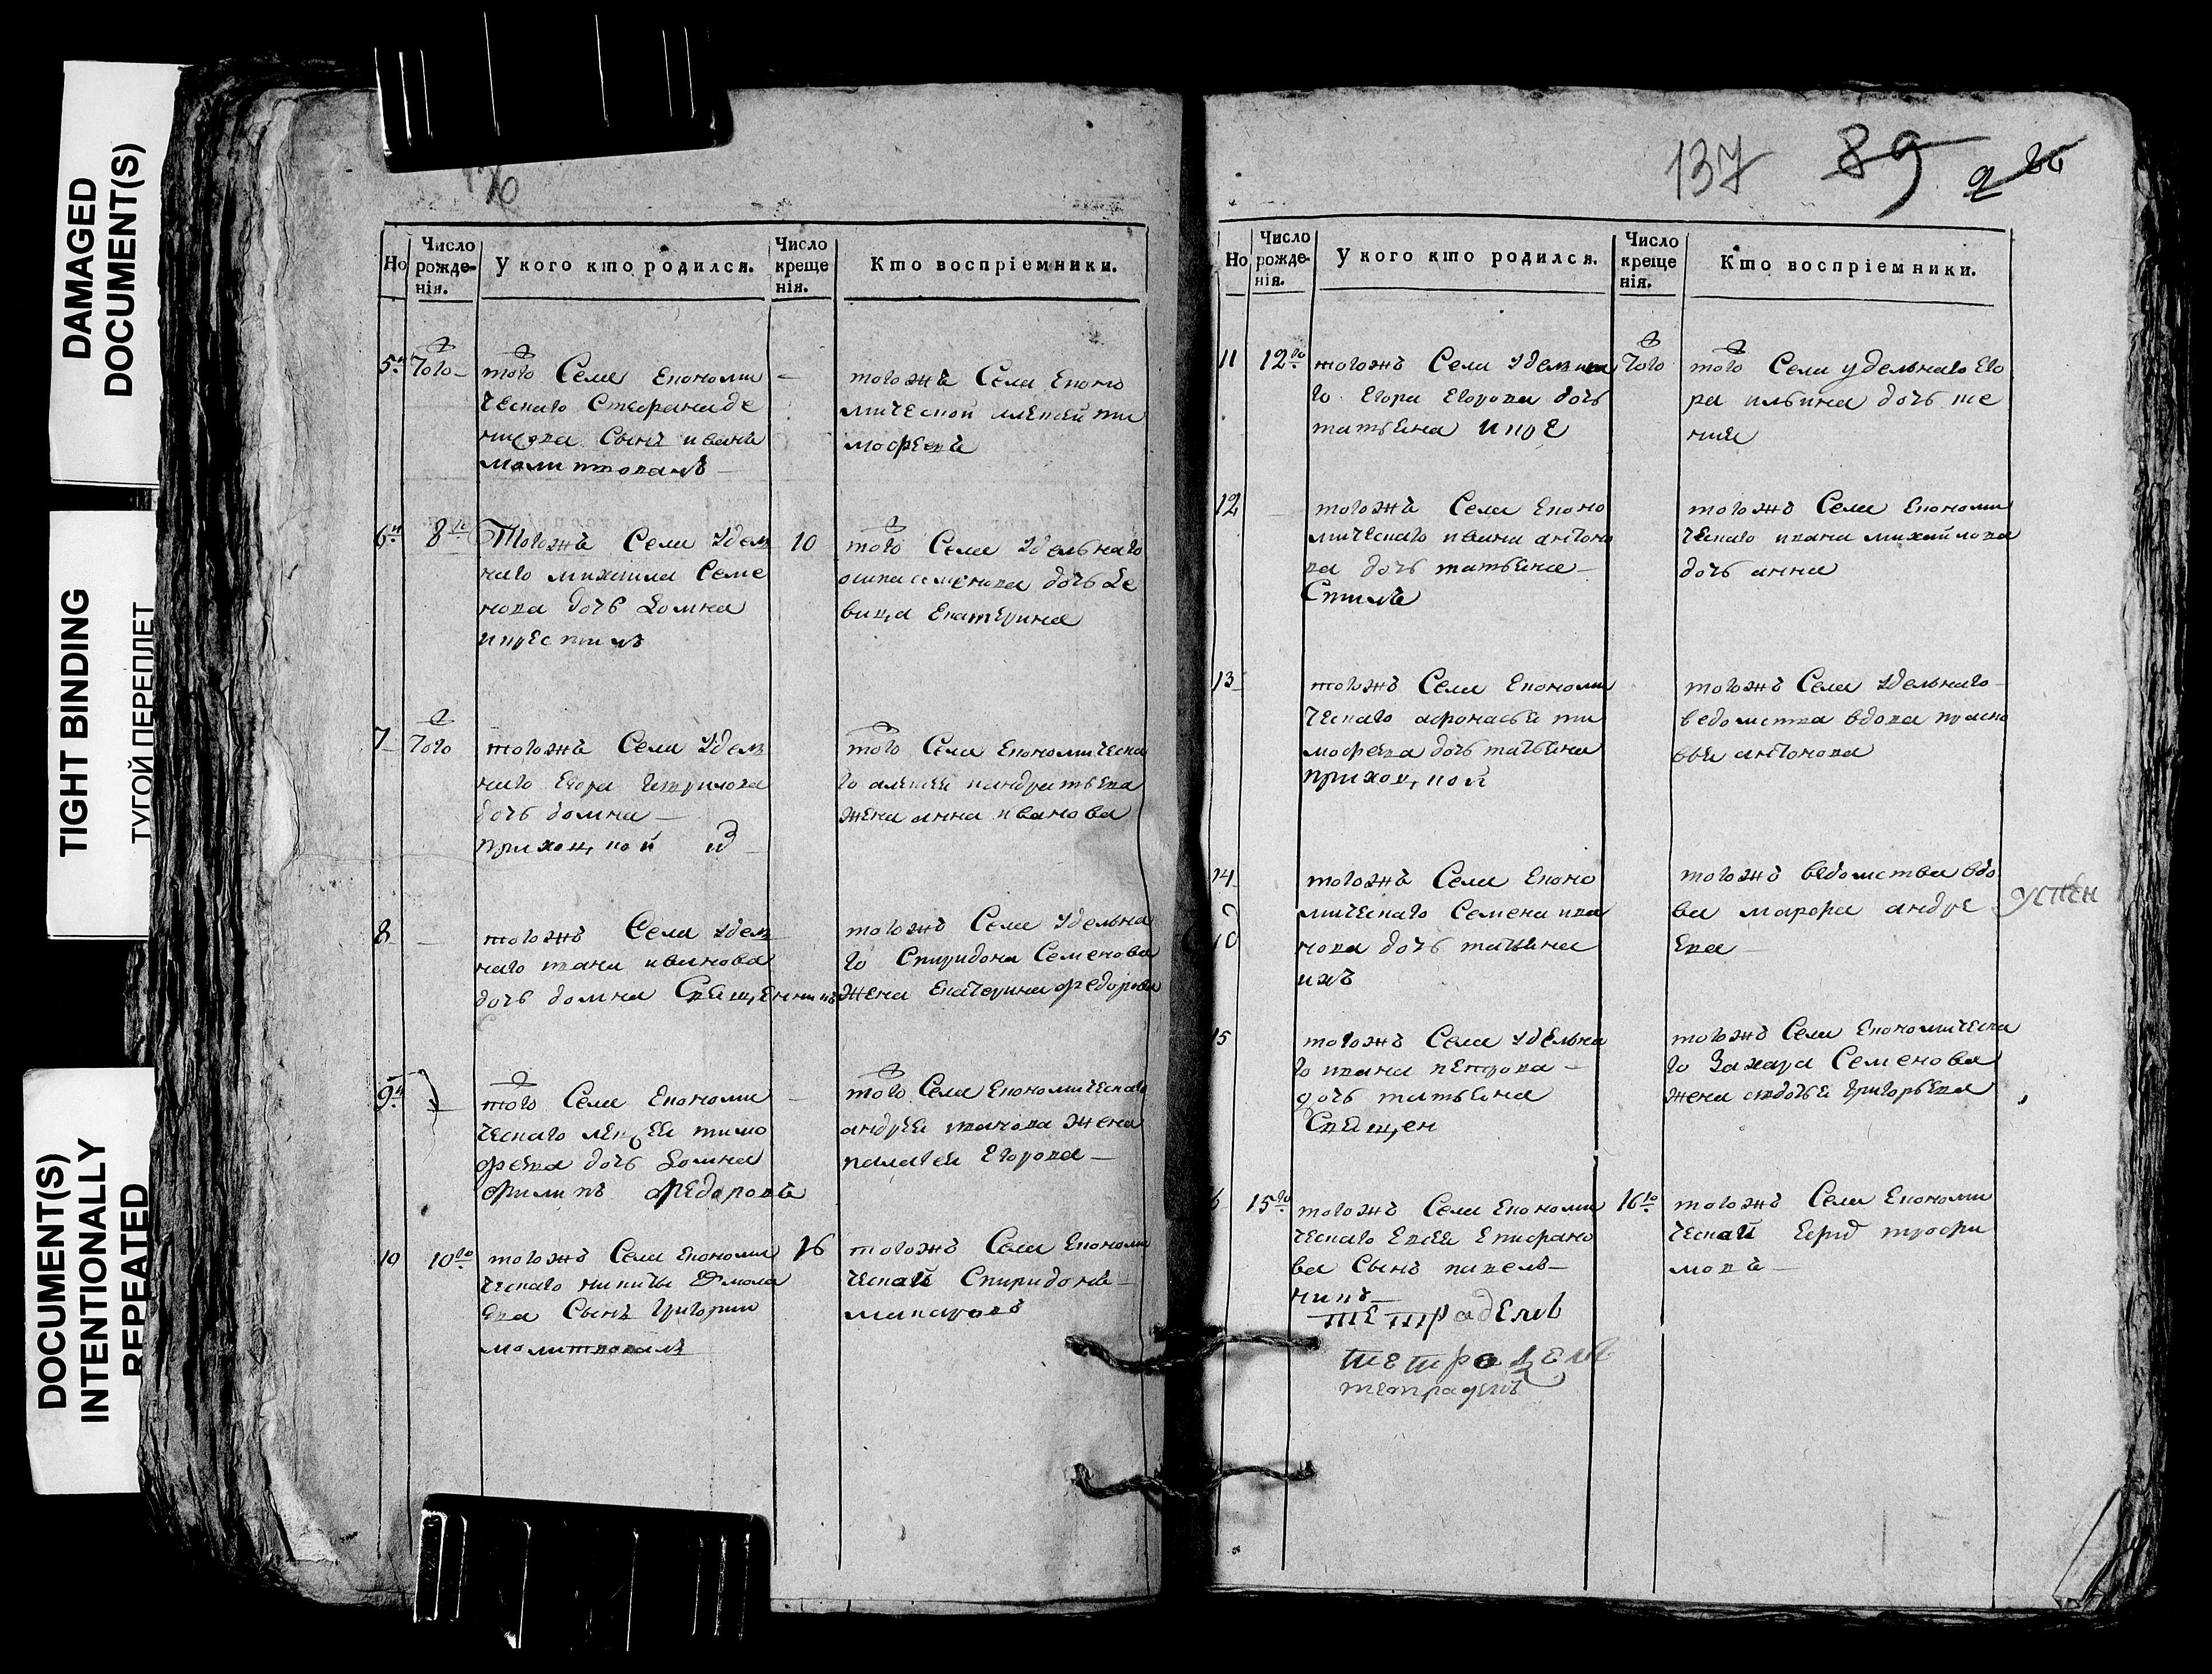 DAMAGED
DOCUMENT(S)
TIGHT BINDING
ТУГОЙ ПЕРЕПЛЕТ
DOCUMENT(S)
INTENTIONALLY
REPEATED
Но
Число рожденія.
У кого кто родился.
Число крещенія.
Кто воспріемники.
5й того
того Села Економи
ческаго Стефана де
Сынъ иванъ
молитвовалъ
тогожъ Села Еконо
мической алексей ти
мофеевъ
6й 8го
Тогожъ Села Удел
наго михаила Семе
нова дочь Домна
и крестилъ
10
того Села Удельнаго
осипа семенова дочь де
вица Екатерина
7 того
тогожъ Села Удел
наго Егора гаврилова
дочь домна
приход, кой
того Села Економическа
го алексея кандратьева
жена анна иванова
8
тогожъ Села Удел
наго ивана иванова
дочь домна Священникъ
тогожъ Села Удельна
го Спиридона Семенова
жена Екатерина федорова
9й
того Села Економи
ческаго алексея тимо
феева дочь Домна
филипъ федоровъ
того Села Економическаго
андрея иванова жена
палагея Егорова
10 10го
тогожъ Села Економи
ческаго никиты Ермола
ева Сынъ григории
молитвовалъ
16
тогожъ Села Економи
ческай Спиридонъ
макаровъ
137 89
Но
Число рожденія.
У кого кто родился.
Число крещенія.
Кто воспріемники.
11 12го
тогожъ Села Уделнаго
го Егора Егорова дочь
татьяна
того
того Села удельнаго Его
ра ильина дочь ксе
ния
12
тогожъ Села Еконо
мическаго ивана антоно
ва дочь татьяна
тогожъ Села Економи
ческаго ивана михайлова
дочь анна
13
тогожъ Села Економи
ческаго афонасья ти
мофеева дочь татьяна
приход, кой
тогожъ Села Удельнаго
ведомства вдова праско
вья антонова
14
тогожъ Села Еконо
мическаго Семена ива
нова дочь татьяна
ихъ
тогожъ ведомства вдо
ва марфа андре
ева
15
тогожъ Села Удельна
го ивана петрова
дочь татьяна
Священ
тогожъ Села Економическа
го Захара Семенова
жена авдотья григорьева
15го
тогожъ Села Економи
ческаго Евсея Епифано
ва Сынъ павелъ
никъ
16го
тогожъ Села Економи
ческай трофи
мовъ
тетраделв
тетраделв
тетраделъ